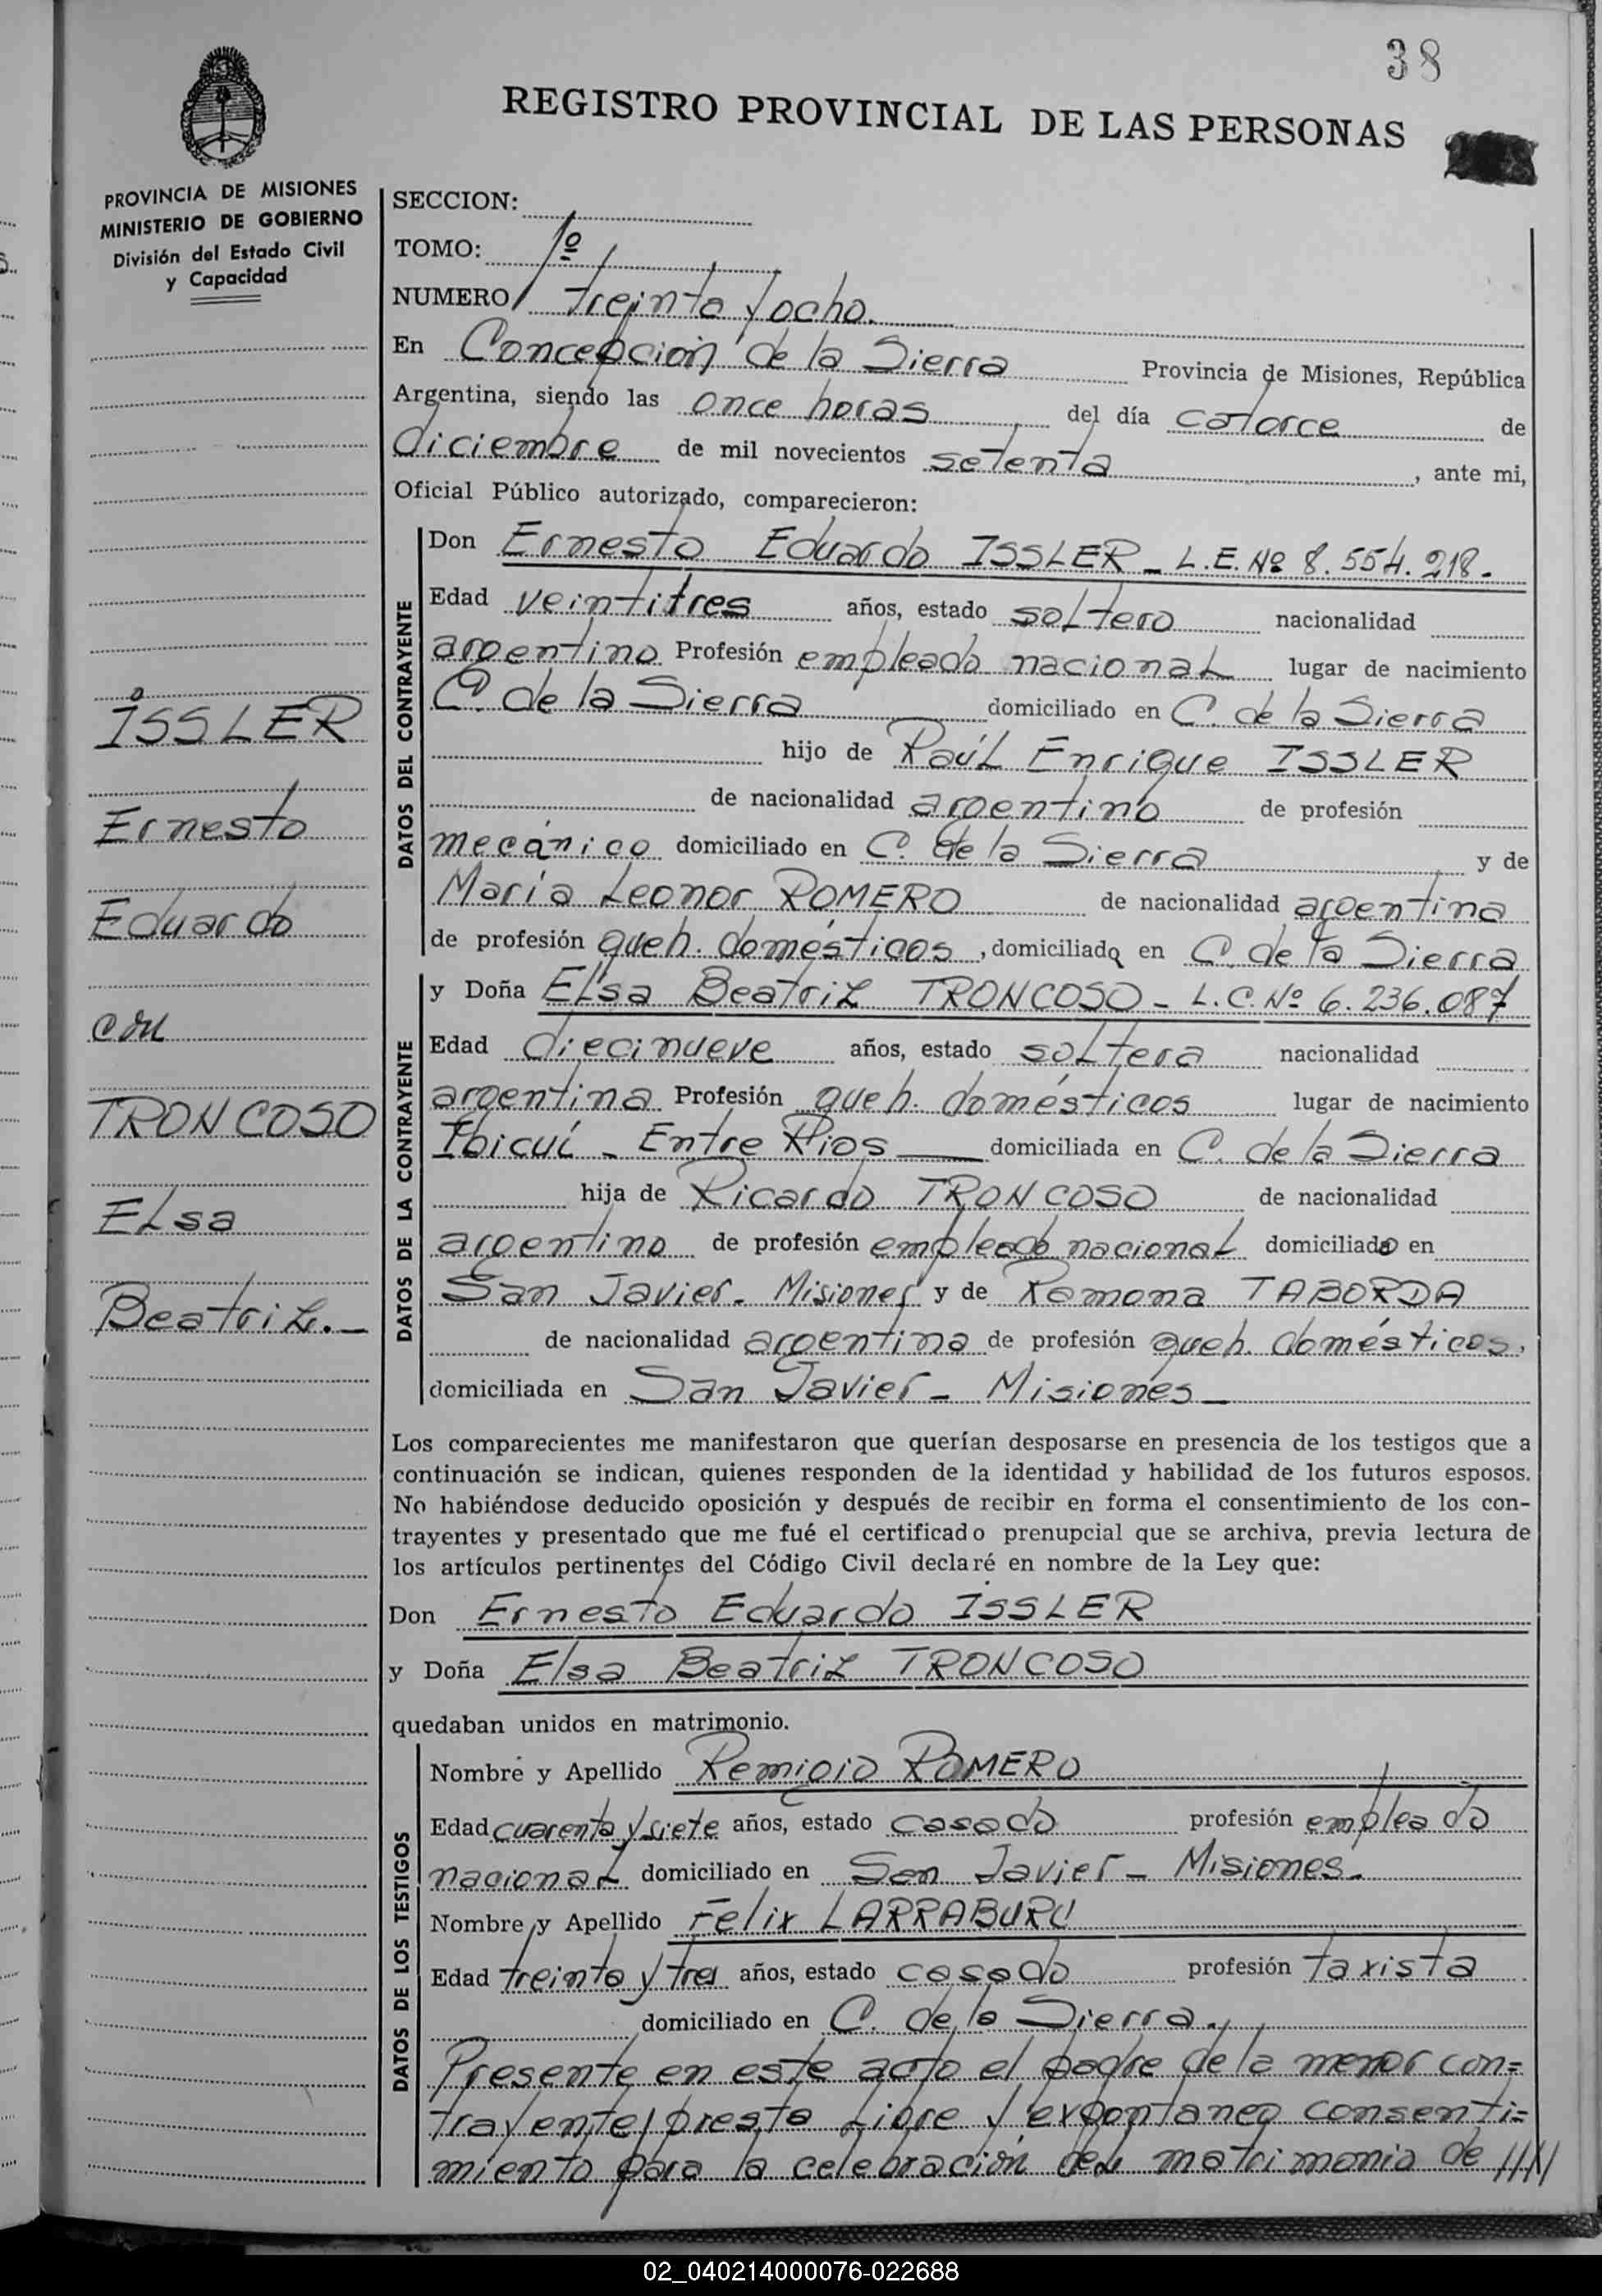 38
REGISTRO PROVINCIAL DE LAS PERSONAS
PROVINCIA DE MISIONES
MINISTERIO DE GOBIERNO
División del Estado Civil
y Capacidad
ISSLER
Ernesto
Eduardo
con
TRONCOSO
Elsa
Beatriz.
SECCION:
TOMO: 1º
NUMERO treinta y ocho.
En Concepción de la Sierra Provincia de Misiones, República
Argentina, siendo las once horas del día catorce de
diciembre de mil novecientos setenta, ante mi,
Oficial Público autorizado, comparecieron:
DATOS DEL CONTRAYENTE
Don Ernesto Eduardo ISSLER - L.E. Nº 8.554.218.
Edad veintitres años, estado soltero nacionalidad
argentino Profesión empleado nacional lugar de nacimiento
C. de la Sierra domiciliado en C. de la Sierra
hijo de Raúl Enrique ISSLER
de nacionalidad argentino de profesión
mecánico domiciliado en C. de la Sierra y de
María Leonor ROMERO de nacionalidad argentina
de profesión queh. domésticos, domiciliada en C. de la Sierra
DATOS DE LA CONTRAYENTE
y Doña Elsa Beatriz TRONCOSO - L.C. Nº 6.236.087
Edad diecinueve años, estado soltera nacionalidad
argentina Profesión queh. domésticos lugar de nacimiento
Ibicuí - Entre Rios domiciliada en C. de la Sierra
hija de Ricardo TRONCOSO de nacionalidad
argentino de profesión empleado nacional domiciliado en
San Javier - Misiones y de Ramona TABORDA
de nacionalidad argentina de profesión queh. domésticos,
domiciliada en San Javier - Misiones
Los comparecientes me manifestaron que querían desposarse en presencia de los testigos que a
continuación se indican, quienes responden de la identidad y habilidad de los futuros esposos.
No habiéndose deducido oposición y después de recibir en forma el consentimiento de los con-
trayentes y presentado que me fué el certificado prenupcial que se archiva, previa lectura de
los artículos pertinentes del Código Civil declaré en nombre de la Ley que:
Don Ernesto Eduardo ISSLER
y Doña Elsa Beatriz TRONCOSO
quedaban unidos en matrimonio.
DATOS DE LOS TESTIGOS
Nombre y Apellido Remigio ROMERO
Edad cuarenta y siete años, estado casado profesión empleado
nacional domiciliado en San Javier - Misiones.
Nombre y Apellido Felix LARRABURU
Edad treinta y tres años, estado casado profesión taxista
domiciliado en C. de la Sierra.
Presente en este acto el padre de la menor con=
trayente, presta libre y expontaneo consenti=
miento para la celebración del matrimonio de ////
02_040214000076-022688